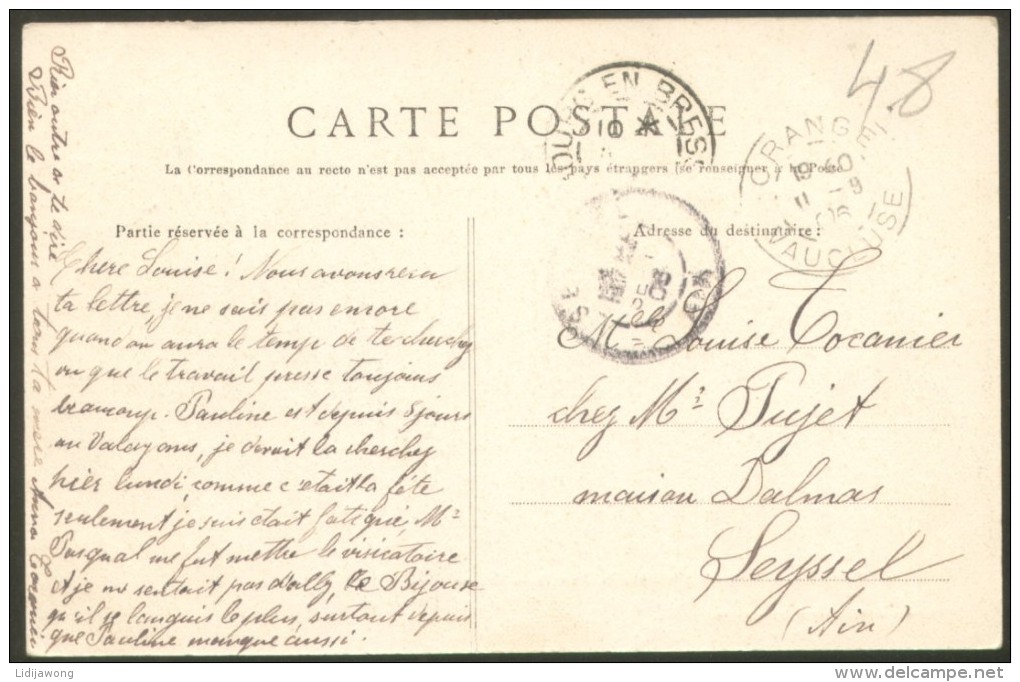 48
CARTE POSTALE
EN BRESSE
10
ORANGE
VAUCLUSE
La Correspondance au recto n'est pas acceptée par tous les pays étrangers (se renseigner à la Poste
Partie réservée à la correspondance :
Adresse du destinataire :
Chere Louise! Nous avons recu
ta lettre, je ne sais pas encore
quand on aura le temp de te cherchez
vu que le travail presse toujours
beaucoup. Pauline est depuis 8 jours
au Valayans, je devait la cherchez
hier lundi, comme c'etait la fête
seulement je suis etait fatiqué, Mr
Pasqual me fut mettre le visicatoire
et je me sentait pas d'allez, le Bijou se
qu'il se languis le plus, surtout depuis
que Pauline manque aussi.
Rien autre a te dire
Bien le bonjour a tous ta mere Anna Tocanier
Mlle Louise Tocanier
chez Mr Pujet
maison Dalmas
Seyssel
(Ain)
Lidijawong
delcampe.net